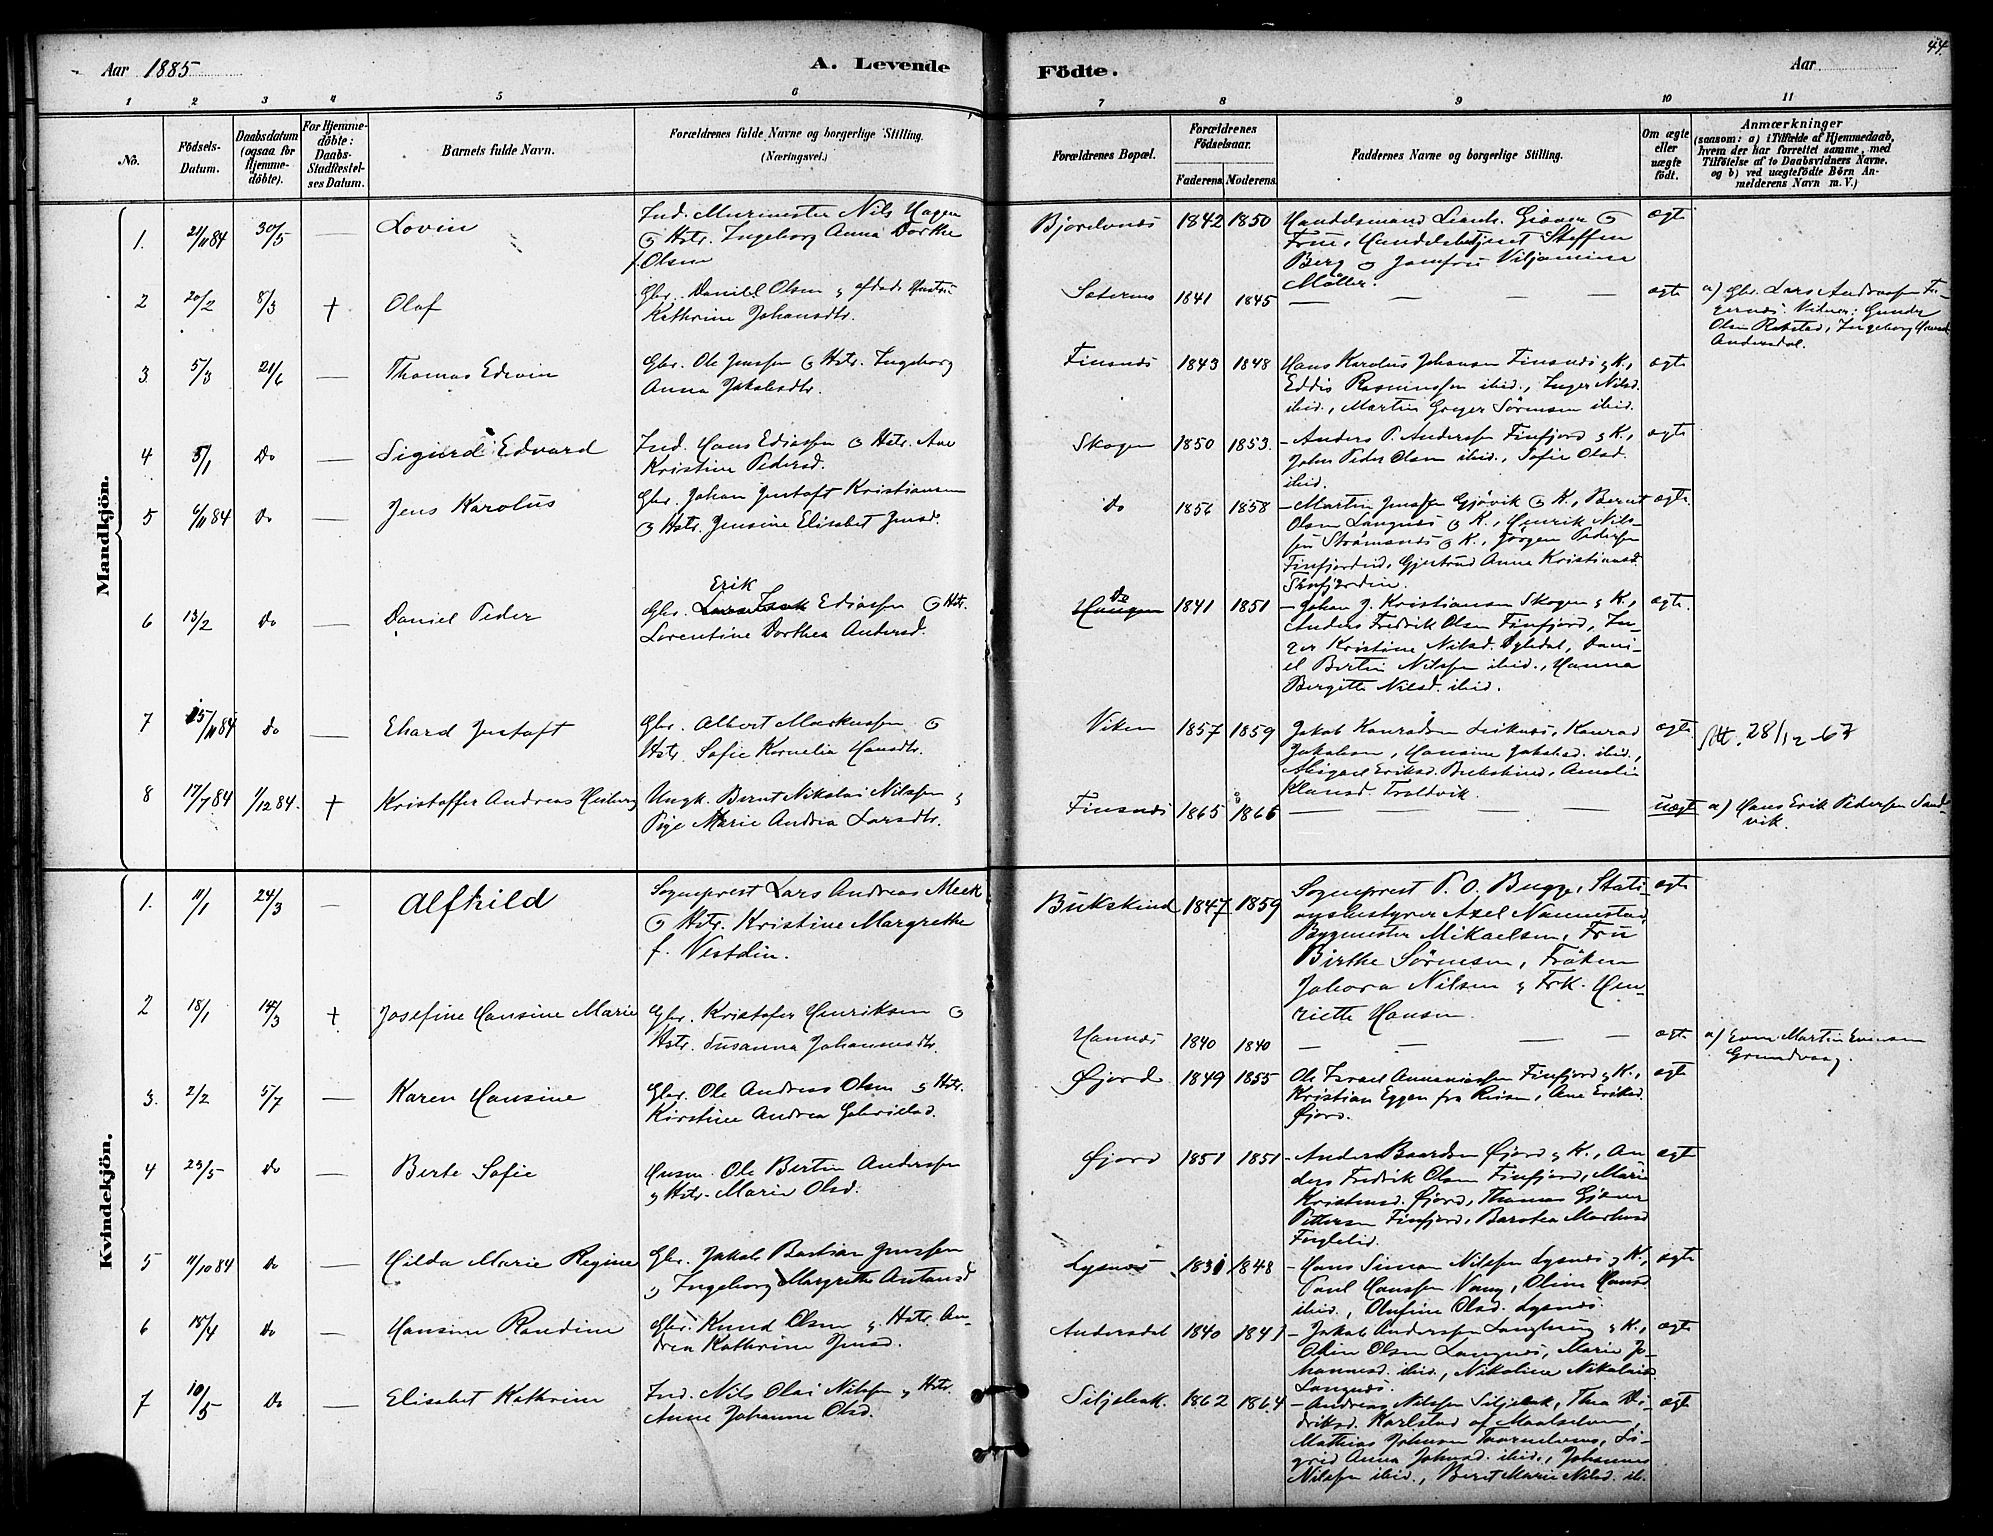 44
Aar 1885
A. Levende
Födte.
Aar
1 2 3 4 5 6 7 8 9 10 11
No.
Födsels-
Datum.
Daabsdatum
(ogsaa for
Hjemme-
döbte).
For Hjemme-
döbte:
Daabs-
Stadfæstel-
ses Datum.
Barnets fulde Navn.
Forældrenes fulde Navne og borgerlige Stilling.
(Næringsvei.)
Forældrenes Bopæl.
Forældrenes
Födselsaar.
Faderens. Moderens.
Faddernes Navne og borgerlige Stilling.
Om ægte
eller
uægte
födt.
Anmærkninger
(saasom: a) i Tilfælde af Hjemmedaab,
hvem der har forrettet samme, med
Tilföielse af to Daabsvidners Navne.
og b) ved uægtefödte Börn An-
melderens Navn m. V.)
Mandkjön.
1. 21/11 84 30/5 — Lovin
Ind. Murmester Nils Hagen
& Hstr. Ingeborg Anna Dorthe
f. Olsen
Bjorelvnes 1842 1850
Handelsmand Leonh. Giæver &
Frue, Handelsbetjent Steffen
Berg & Jomfru Viljamine
Møller.
ægte
2 20/2 8/3 + Olaf
Gbr. Daniel Olsen & afdøde Hustru
Kathrine Johansdtr.
1841 1845 — — — — ægte
a) Gbr. Lars Andreassen
Vidner: Gunder
Olsen Rakstad, Ingeborg
Andersdal.
3 5/3 21/6 — Thomas Edvin
Gbr. Ole Jenssen & Hstr. Ingeborg
Anna Jakobsdtr.
Finsnes 1843 1848
Hans Karolus Johansen Finsnes & K.,
Eddis Rasmussen ibid., Inger Nilsd.
ibid., Martin Greger Sörensen ibid.
ægte
4 5/1 Do — Sigurd Edvard
Ind. Hans Ediassen & Hstr. Ane
Kristine Pedersd.
Skogen 1850 1853.
Anders P. Anderssen Finfjord & K.,
Johan Peder Olsen ibid., Sofie Olsd.
ibid.
ægte
5 6/11 84 Do — Jens Karolus
Gbr. Johan Justaft Kristiansen
& Hstr. Jensine Elisabet Jensd.
do 1856 1858
Martin Jenssen Gjøvik & K., Bernt
Olsen Langnes & K., Henrik Nils-
sen Strømsnes & K., Jørgen Pedersen
Finfjordeid, Gjertrud Anna Kristiansd.
Finfjorden.
ægte
6 13/2 Do — Daniel Peder
Erik
Gbr. Ediassen & Hstr.
Lorentine Dorthea Andersd.
Do
Haugen 1841 1851
Johan J. Kristiansen Skogen & K.,
Anders Fredrik Olsen Finfjord, In-
ger Kristine Nilsd. Dyledal, Dani-
el Bertin Nilssen ibid., Hanna
Bergitte Nilsd. ibid.
ægte.
7 15/11 84 Do — Ehard Justaft
Gbr. Albert Markussen &
Hstr. Sofie Kornelia Hansdtr.
Viken 1857 1859
Jakob Konradsen Leiknes, Konrad
Jakobsen, Hansine Jakobsd. ibid.,
Abigael Eriksd. Bukskind, Amalie
Klausd. Troldvik.
ægte
Att. 28/12 67
8 17/7 84 1/12 84. + Kristoffer Andreas Heiberg
Ungk. Bernt Nikolai Nilssen &
Pige Marie Andrea Larsdtr.
Finsnes 1865 1866 — — uægt
a) Hans Erik Pedersen Sand-
vik.
Kvindekjön.
1. 11/1 24/3 — Alfhild
Sogneprest Lars Andreas Meek
& Hstr. Kristine Margrethe
f. Vestdin.
Bukskind 1847 1859
Sogneprest P. O. Bugge, Stati-
onsbestyrer Axel Nannestad,
Bygmester Mikaelsen, Fru
Birthe Sørensen, Frøken
Jahora Nilsen & Frk. Hen-
riette Hansen.
ægte
2 18/1 14/3 + Josefine Hansine Marie
Gbr. Kristofer Henriksen &
Hstr. Susanna Johannesdtr.
Hannes 1840 1840 — — — — ægte
a) Even Martin Evensen
Grundvaag.
3. 2/2 5/7 — Karen Hansine
Gbr. Ole Andreas Olsen & Hstr.
Kirstine Andrea Gabrielsd.
Øjord 1849 1855
Ole Israel Annaniassen Finfjord & K.,
Kristian Eggen fra Reisen, Ane Eriksd.
Øjord.
ægt
4 23/5 Do — Berte Sofie
Husm. Ole Bertin Anderssen
& Hstr. Marie Olsd.
Øjord 1851 1851
Anders Baardsen Øjord & K., An-
ders Fredrik Olsen Finfjord, Marie
Kristensd. Øjord, Thomas Gjæver
Pettersen Finfjord, Barotea Markusd.
Fuglelid.
ægt
5 11/10 84 Do — Hilda Marie Regine
Gbr. Jakob Bastian Jenssen
& Ingeborg Margrethe Antonsd
Lysnes 1831 1848
Hans Simon Nilssen Lysnes & K.,
Paul Hanssen Vang, Oline Hansd.
ibid., Olufine Olsd. Lysnes.
ægt
6 18/4 Do — Hansine Randine
Gbr. Knud Olsen & Hstr. An-
drea Kathrine Jensd.
Andersdal 1840 1841
Jakob Anderssen & K.,
Olsen Langnes, Marie Jo-
hannesd. ibid., Nikoline Nikolaisd.
Langnes.
ægte
7 10/5 Do — Elisabet Kathrine
Ind. Nils Olai Nilssen & Hstr.
Anne Johanne Olsd.
Siljebak. 1862 1864
Andreas Nilssen Siljebak, Thea Di-
driksd. Karlstad af Maalselven,
Mathias Johnsen Taarnelvnes, Si-
grid Anna Johnsd. ibid., Johannes
Nilssen ibid., Berit Marie Nilsd. ib.
ægt